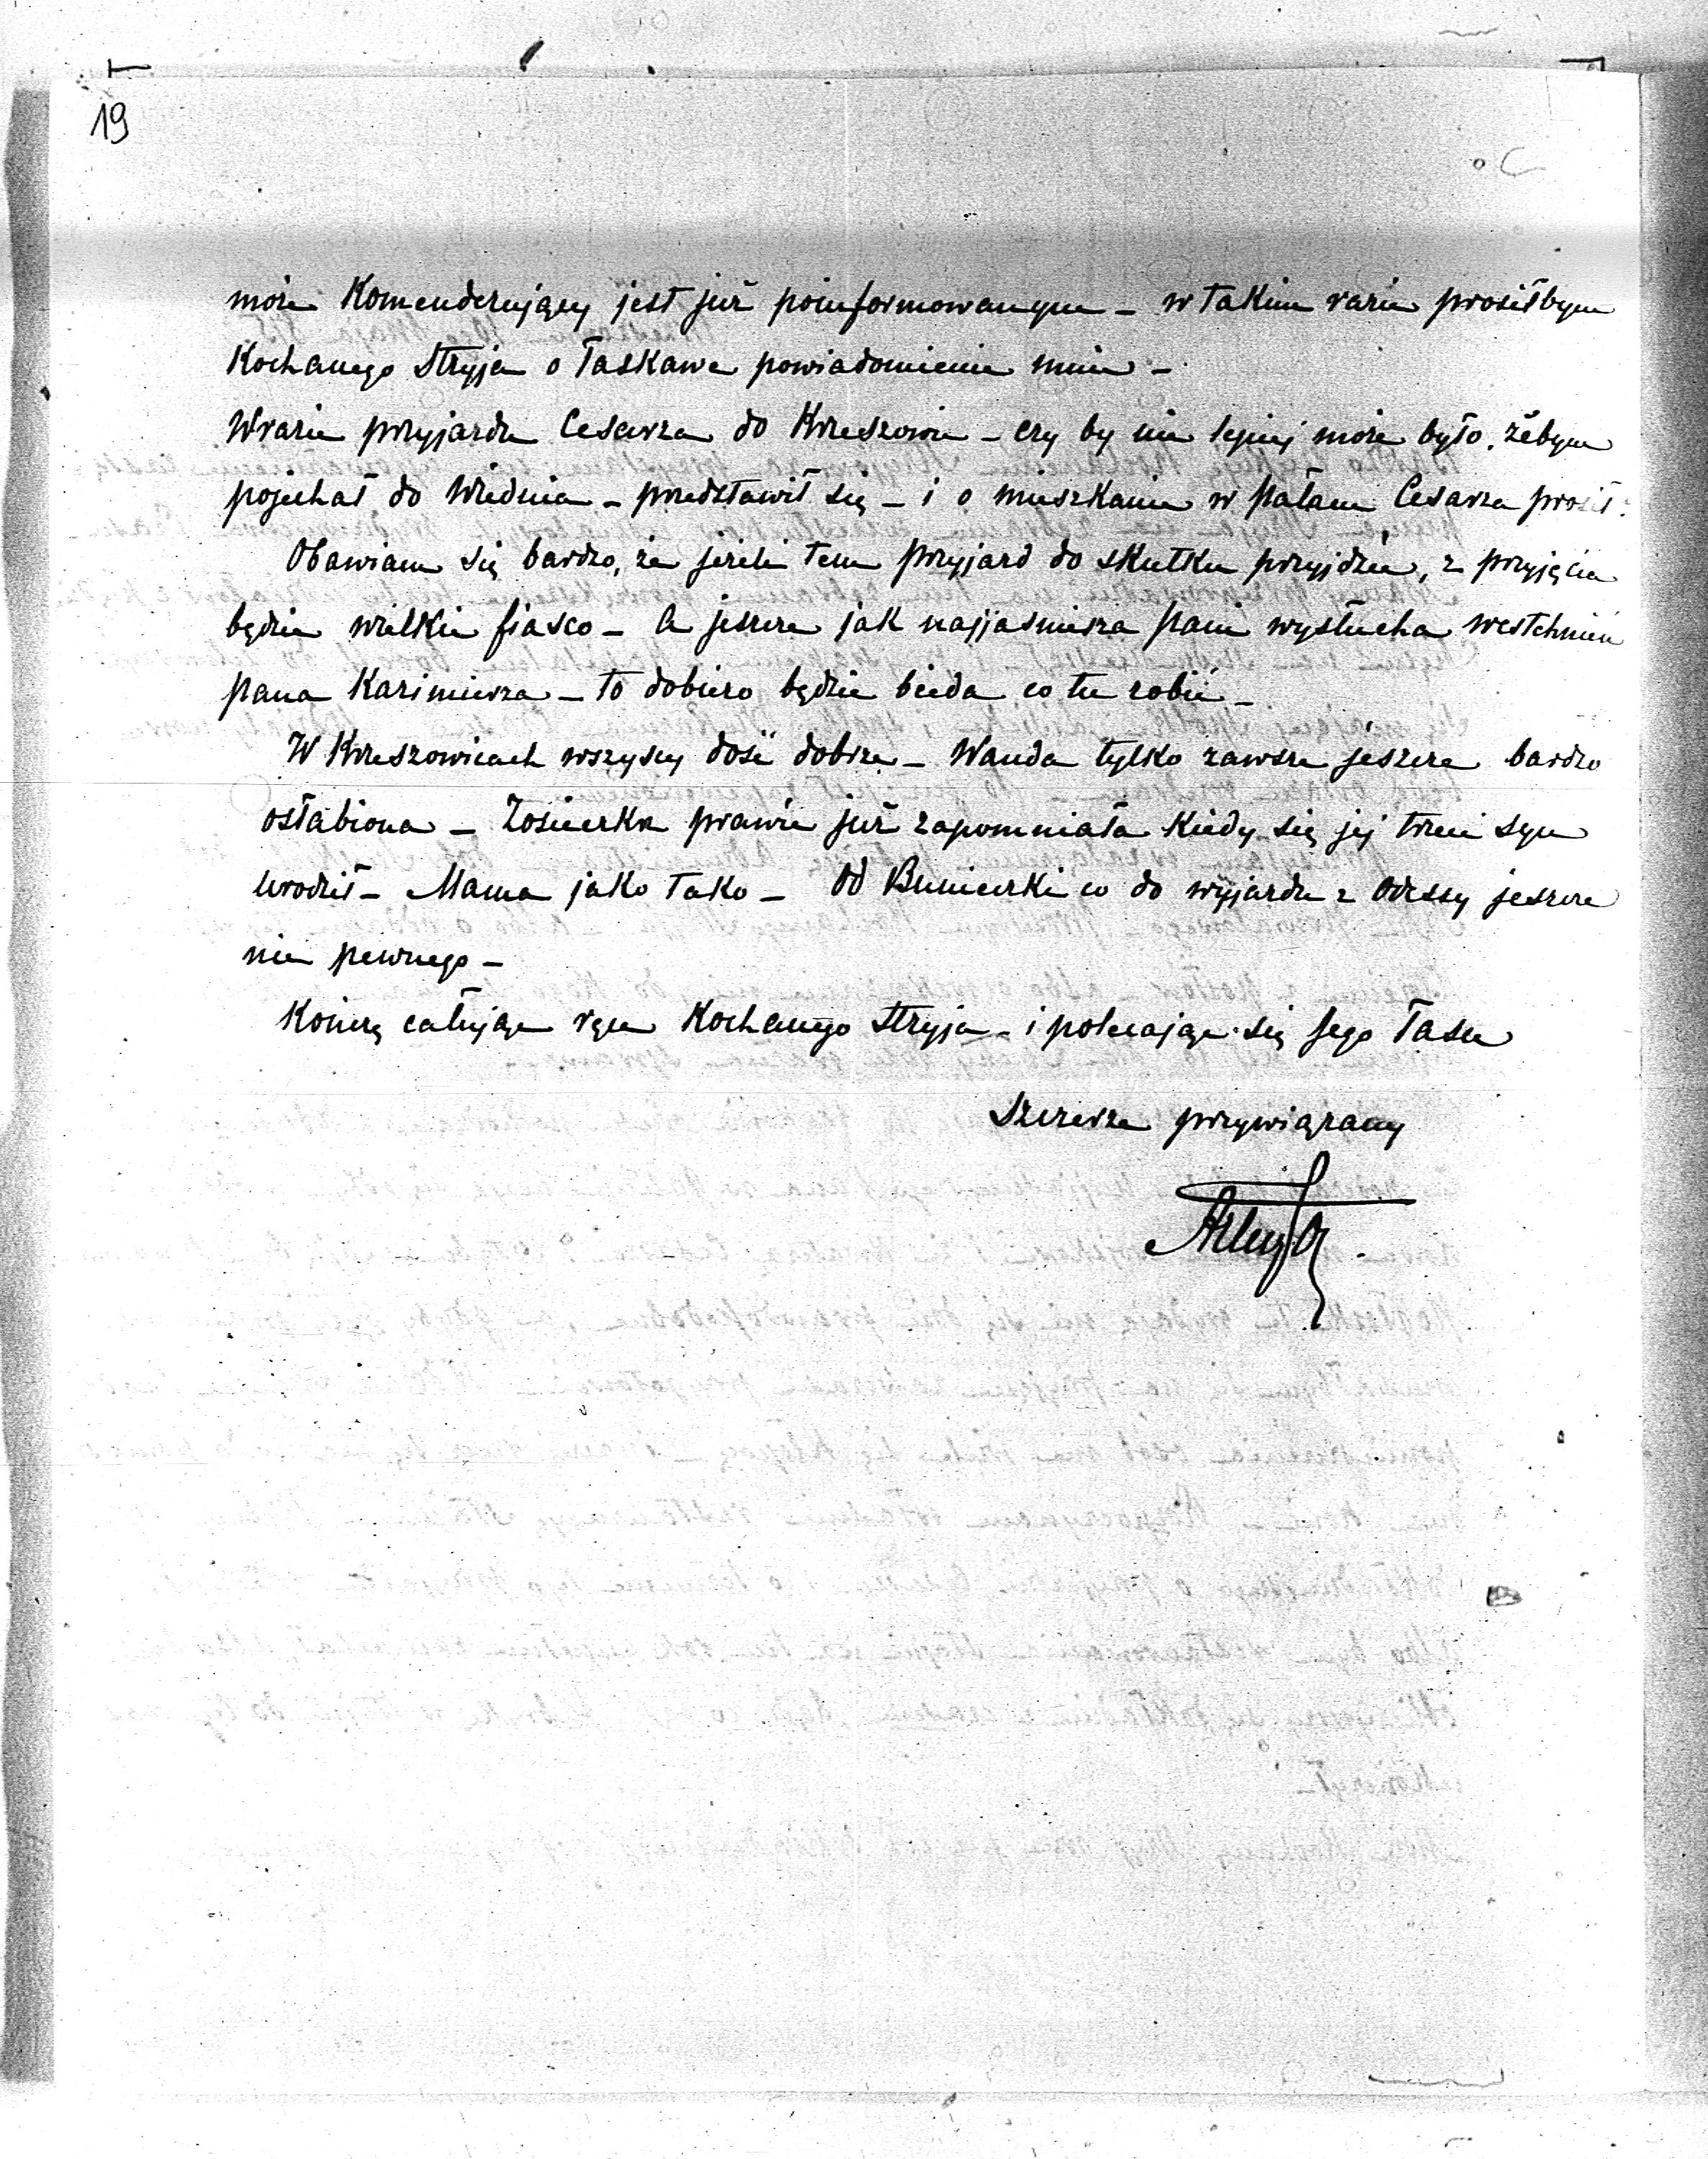 19
może Komenderujący jest już poinformowanym – w takim razie prosiłbym
Kochanego Stryja o łaskawe powiadomienie mnie –
W razie przyjazdu Cesarza do Krzeszowic – czy by nie lepiej może było, żebym
pojechał do Wiednia – przedstawił się – i o mieszkanie w pałacu Cesarza prosił?
Obawiam się bardzo, że jeżeli ten przyjazd do skutku przyjdzie, z przyjęcia
będzie wielkie fiasco – a jeszcze jak najjaśniejsza pani wysłucha westchnień
pana Kazimierza – to dobiero będzie bieda co tu robić –
W Krzeszowicach wszyscy dość dobrze – Wanda tylko zawsze jeszcze bardzo
osłabiona – Zosieczka prawie już zapomniała kiedy się jej trzeci syn
urodził – Mama jako tako – Od co do wyjazdu z Odessy jeszcze
nic pewnego –
Kończę całując ręce Kochanego Stryja – i polecając się Jego łasce
Szczerze przywiązany